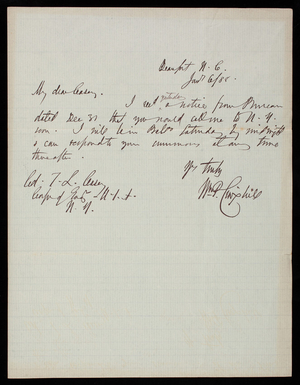 Beaufort N.C.
Jan'y 6/88.
My dear Casey,
I rec'd yesterday a notice from Bureau
dated Dec 31 that you would call me to N.Y.
soon. I will be in Balto Saturday by midnight
& can respond to your summons at any time
thereafter.
Yrs truly
Wm. P. Craighill
Col. T. L. Casey
Corps of Eng
N.Y.